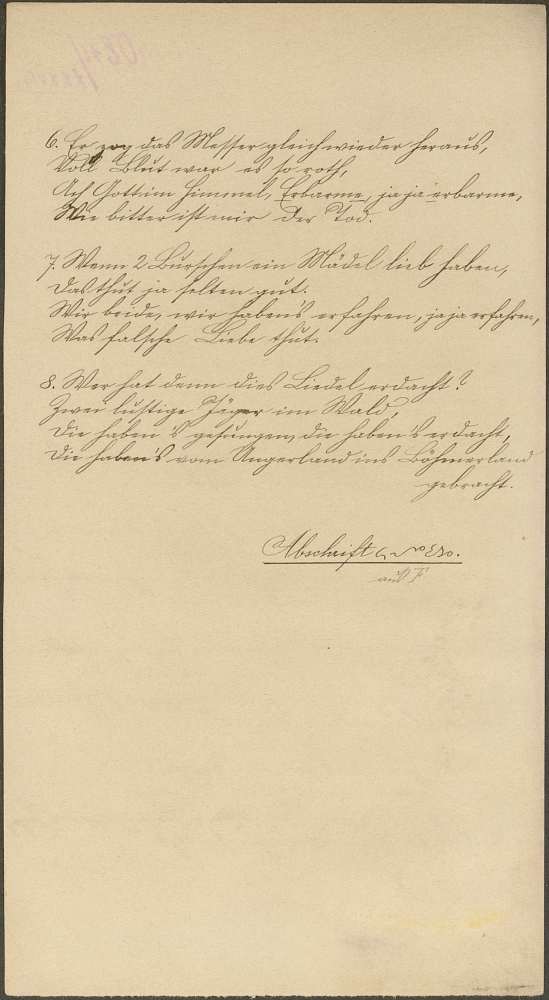 6. Er zog das Messer gleich wieder heraus,
Voll Blut war es so roth,
Ach Gott im Himmel, Erbarme, ja ja erbarme,
Wie bitter ist mir der Tod.
7. Wenn 2 Burschen ein Mädel lieb haben,
Das thut ja selten gut.
Wir beide, wir haben's erfahren, ja ja erfahren,
Was falsche Liebe thut.
8. Wer hat denn dies Liedel erdacht?
Zwei lustige Jäger im Wald,
Die haben's gesungen, die haben's erdacht,
Die haben's vom Ungerland ins Böhmerland
gebracht.
Abschrift
aus F